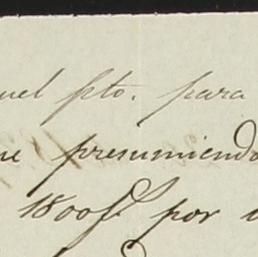 uel pto. para
ue presumiendo
1800f. por